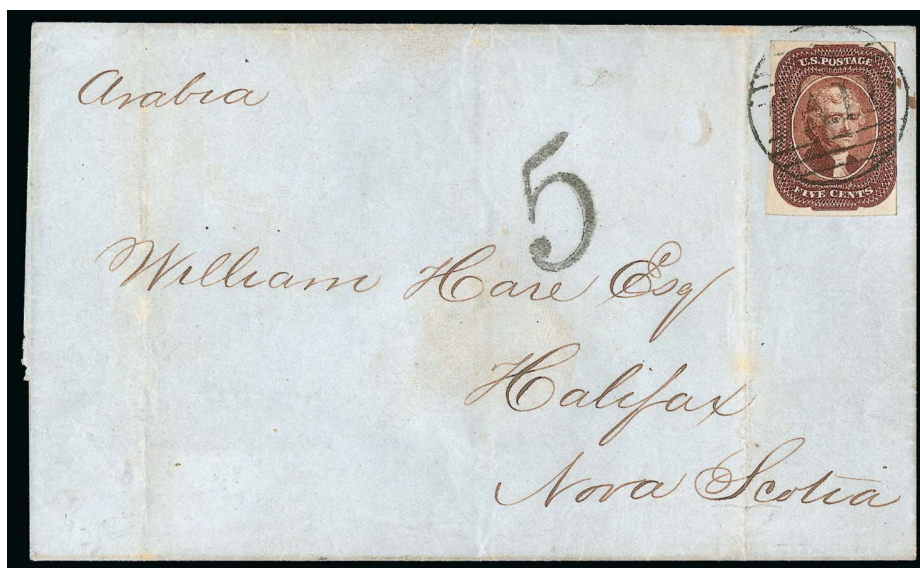 Arabia
U.S. POSTAGE
5
FIVE CENTS
William Hare Esq
Halifax
Nova Scotia